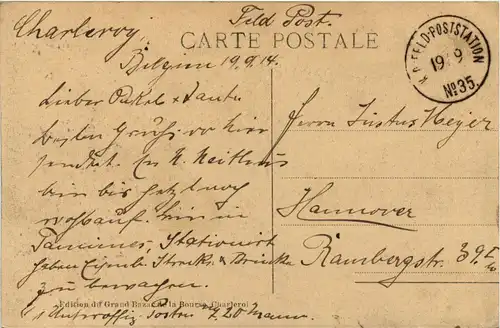 Charleroy,
Feld Post.
CARTE POSTALE
Belgien 19.9.14.
K.P. FELD-POSTSTATION
19 9
No 35.
Lieber Onkel & Tante
besten Gruß von hier
sendet
bin bis jetzt noch
wohlauf. bin in
Tamines, Stationirt
haben Eisenb. Strecke & Brücke
zu bewachen.
Unteroffiz. Posten 20 Mann.
Herrn Justus Meyer
Hannover
Rambergstr. 39
Edition du Grand Bazar de la Bourse, Charleroi